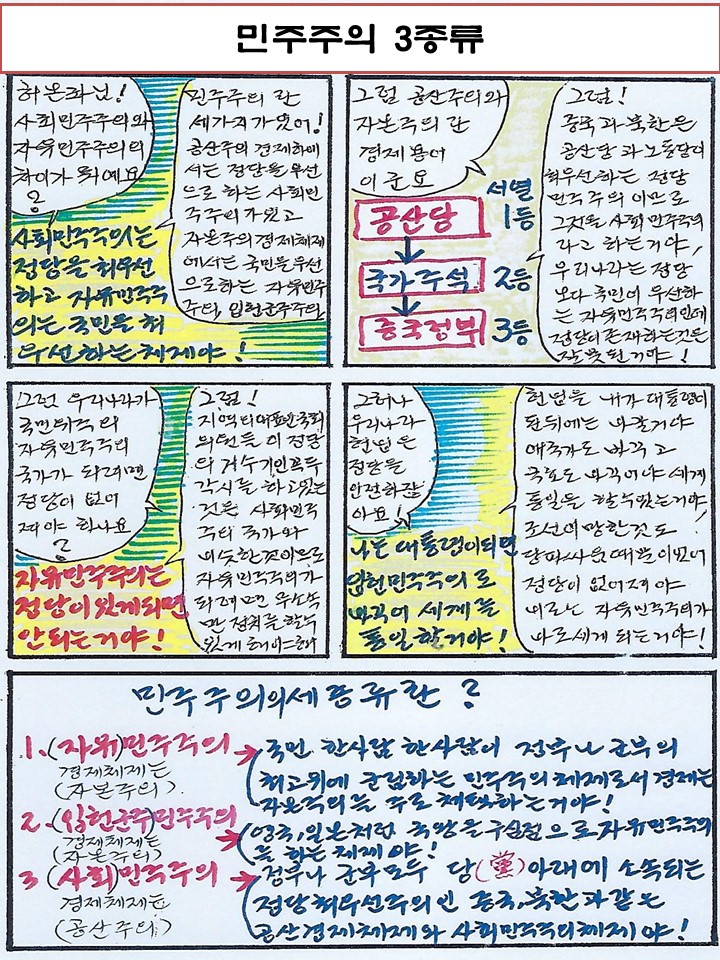 민주주의 3종류
허온좌님!
사회민주주의와
자유민주주의의
차이가 뭐예요
?
민주주의 란
세가지가있어!
공산주의 경제하에
서는 정당을 우선
으로 하는 사회민
주주의가있고
자본주의경제체제
에서는 국민을우선
으로하는 자유민주
주의, 입헌군주주의
사회민주주의는
정당을 최우선
하고 자유민주주
의는 국민을 최
우선하는체제야!
그럼 공산주의와
자본주의 란
경제용어
이군요
서열
공산당 1등
국가주석 2등
중국정부 3등
그럼!
중국과 북한은
공산당과 노동당이
최우선하는 정당
민주주의 이므로
그것을 사회민주주의
라고 하는거야,
우리나라는 정당
보다 국민이 우선하
는 자유민주주의인데
정당이존재하는것은
잘못된거야!
그럼 우리나라가
국민위주의
자유민주주의
국가가 되려면
정당이 없어
져야 하나요
?
그럼!
지역의대표인국회
의원들이 정당
의 거수기인꼭두
각시를 하고있는
것은 사회민주
주의 국가와
비슷한것이므로
자유민주주의가
되려면 무소속
만 정치를 할수
있게 해야해
자유민주주의는
정당이있게되면
안되는거야!
그러나
우리나라
헌법은
정당을
인정하잖
아요!
헌법을 내가 대통령이
된뒤에는 바꿀거야
애국가도 바꾸고
국호도 바꾸어야 세계
통일을 할수있는거야!
조선이망한것도
당파싸움때문이었어
정당이 없어져야
비로는 자유민주주의가
바로세게 되는거야!
나는 대통령이되면
입헌민주주의로
바꾸어 세계를
통일할거야!
민주주의의세종류란?
1.(자유)민주주의
경제체제는
(자본주의).
국민 한사람 한사람이 정부나 군부의
최고위에 군림하는 민주주의체제로서 경제는
자본주의를 주로 채택하는거야!
2.(입헌군주)민주주의
경제체제는
(자본주의)
영국,일본처럼 국왕을구심점으로자유민주주의
를 하는체제야!
3 (사회)민주주의
경제체제는
(공산주의)
정부나 군부모두 당(黨)아래에 소속되는
정당최우선주의인 중국,북한과같은
공산경제체제와 사회민주주의체제야!